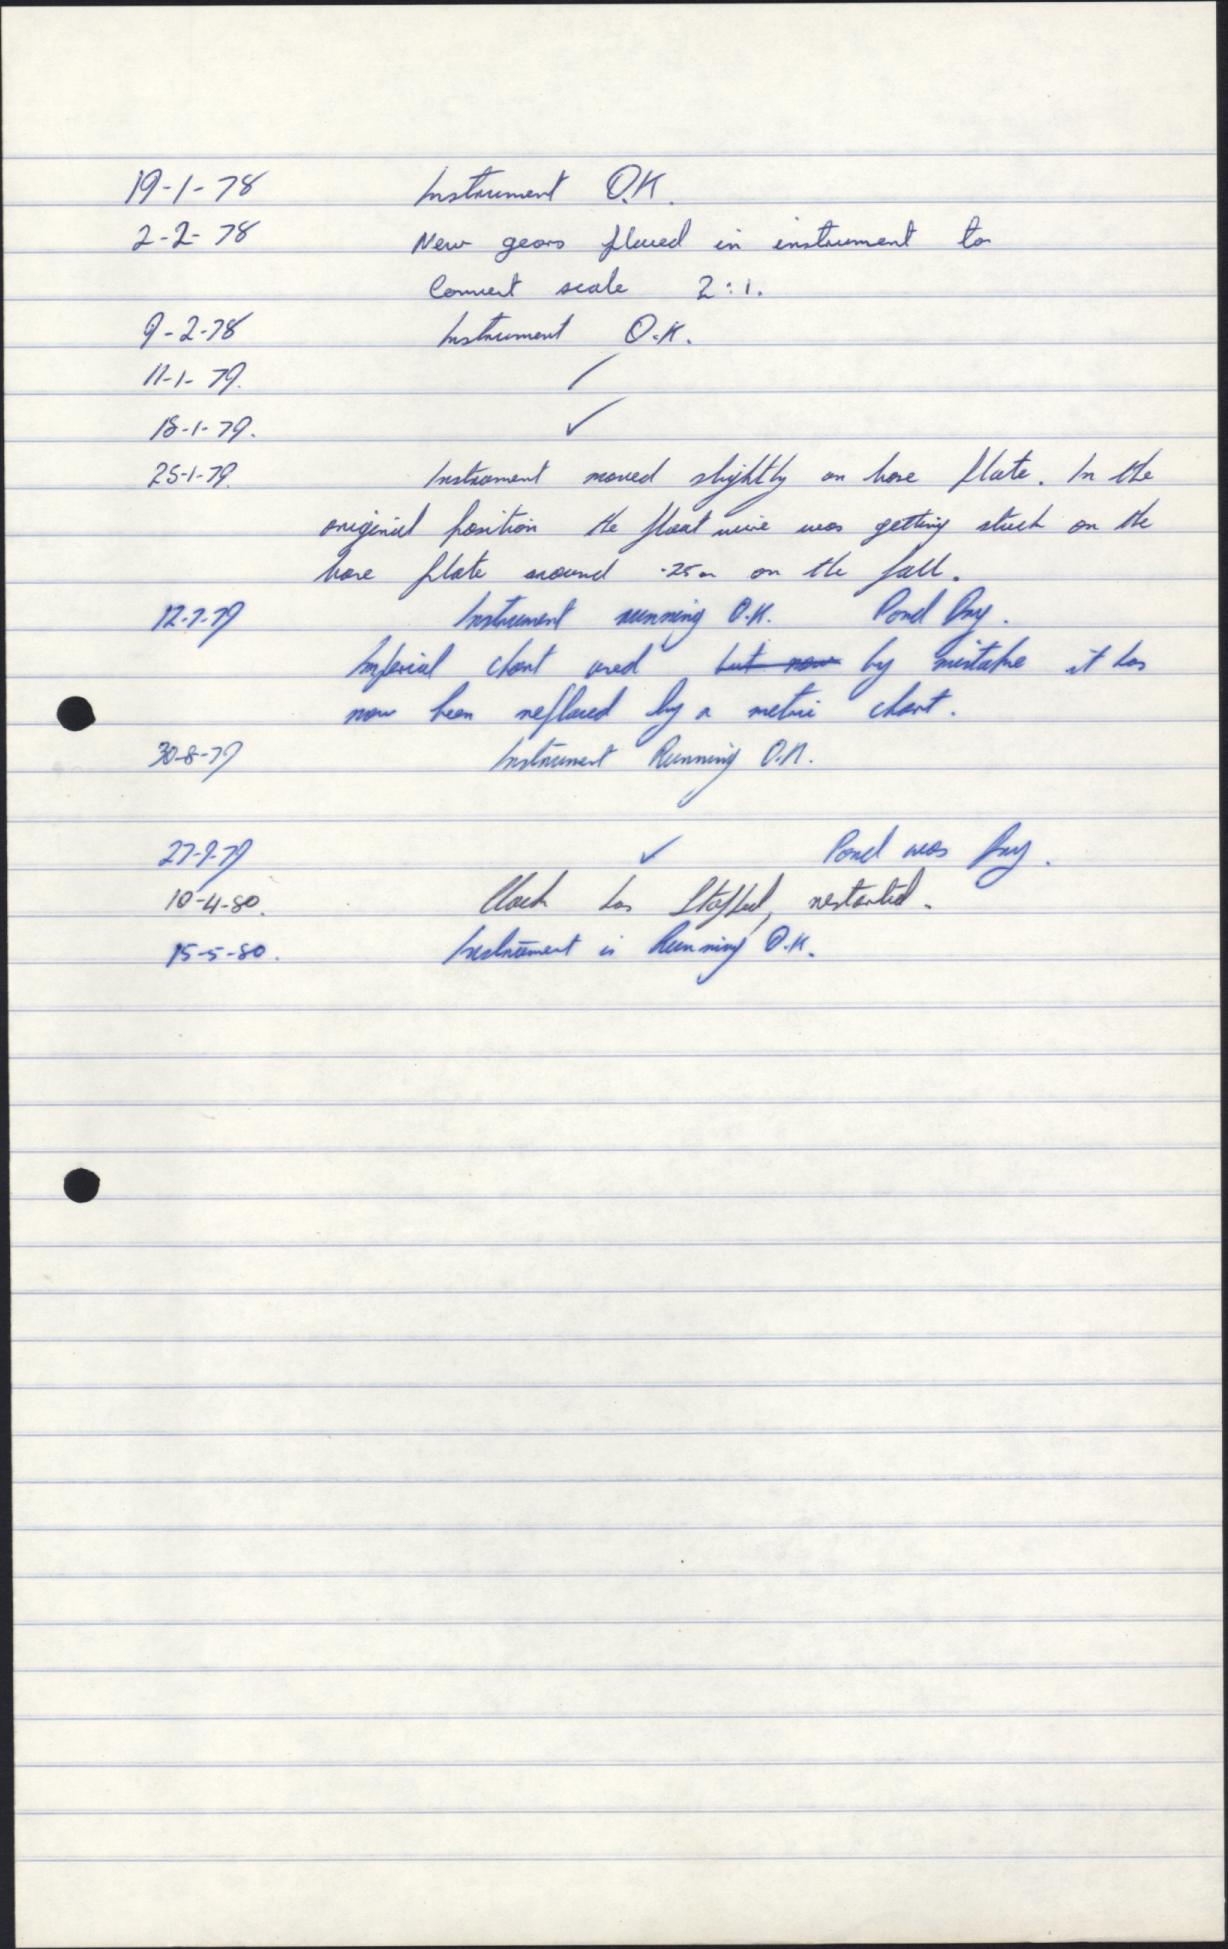 19-1-78 Instrument O.K.
2-2-78 New gears placed in instrument to
Convert scale 2:1.
9-2-78 Instrument O.K.
11-1-79. ✓
18-1-79. ✓
25-1-79. Instrument moved slightly on base plate. In the
original position the float wire was getting stuck on the
base plate around .25m on the fall.
12-7-79 Instrument running O.K. Pond Dry.
Imperial chart used but now by mistake it has
now been replaced by a metric chart.
30-8-79 Instrument Running O.K.
27-9-79 ✓ Pond was Dry.
10-4-80. Clock has Stopped, restarted.
15-5-80. Instrument is Running O.K.